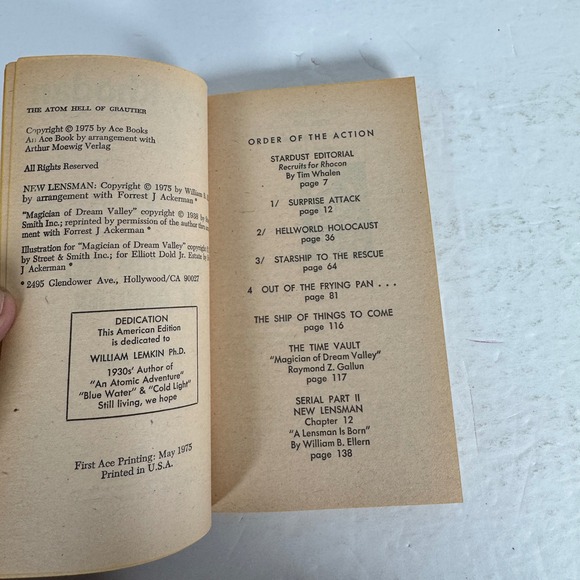 THE ATOM HELL OF GRAUTIER
Copyright © 1975 by Ace Books
An Ace Book by arrangement with
Arthur Moewig Verlag
All Rights Reserved
NEW LENSMAN: Copyright © 1975 by William B.
by arrangement with Forrest J Ackerman *
"Magician of Dream Valley" copyright © 1938 by
Smith Inc.; reprinted by permission of the author
ment with Forrest J Ackerman *
Illustration for "Magician of Dream Valley" copyright
by Street & Smith Inc.; for Elliott Dold Jr. Estate by
J Ackerman *
* 2495 Glendower Ave., Hollywood/CA 90027
DEDICATION
This American Edition
is dedicated to
WILLIAM LEMKIN Ph.D.
1930s' Author of
"An Atomic Adventure"
"Blue Water" & "Cold Light"
Still living, we hope
First Ace Printing: May 1975
Printed in U.S.A.
ORDER OF THE ACTION
STARDUST EDITORIAL
Recruits for Rhocon
By Tim Whalen
page 7
1/ SURPRISE ATTACK
page 12
2/ HELLWORLD HOLOCAUST
page 36
3/ STARSHIP TO THE RESCUE
page 64
4 OUT OF THE FRYING PAN . . .
page 81
THE SHIP OF THINGS TO COME
page 116
THE TIME VAULT
"Magician of Dream Valley"
Raymond Z. Gallun
page 117
SERIAL PART II
NEW LENSMAN
Chapter 12
"A Lensman is Born"
By William B. Ellern
page 138